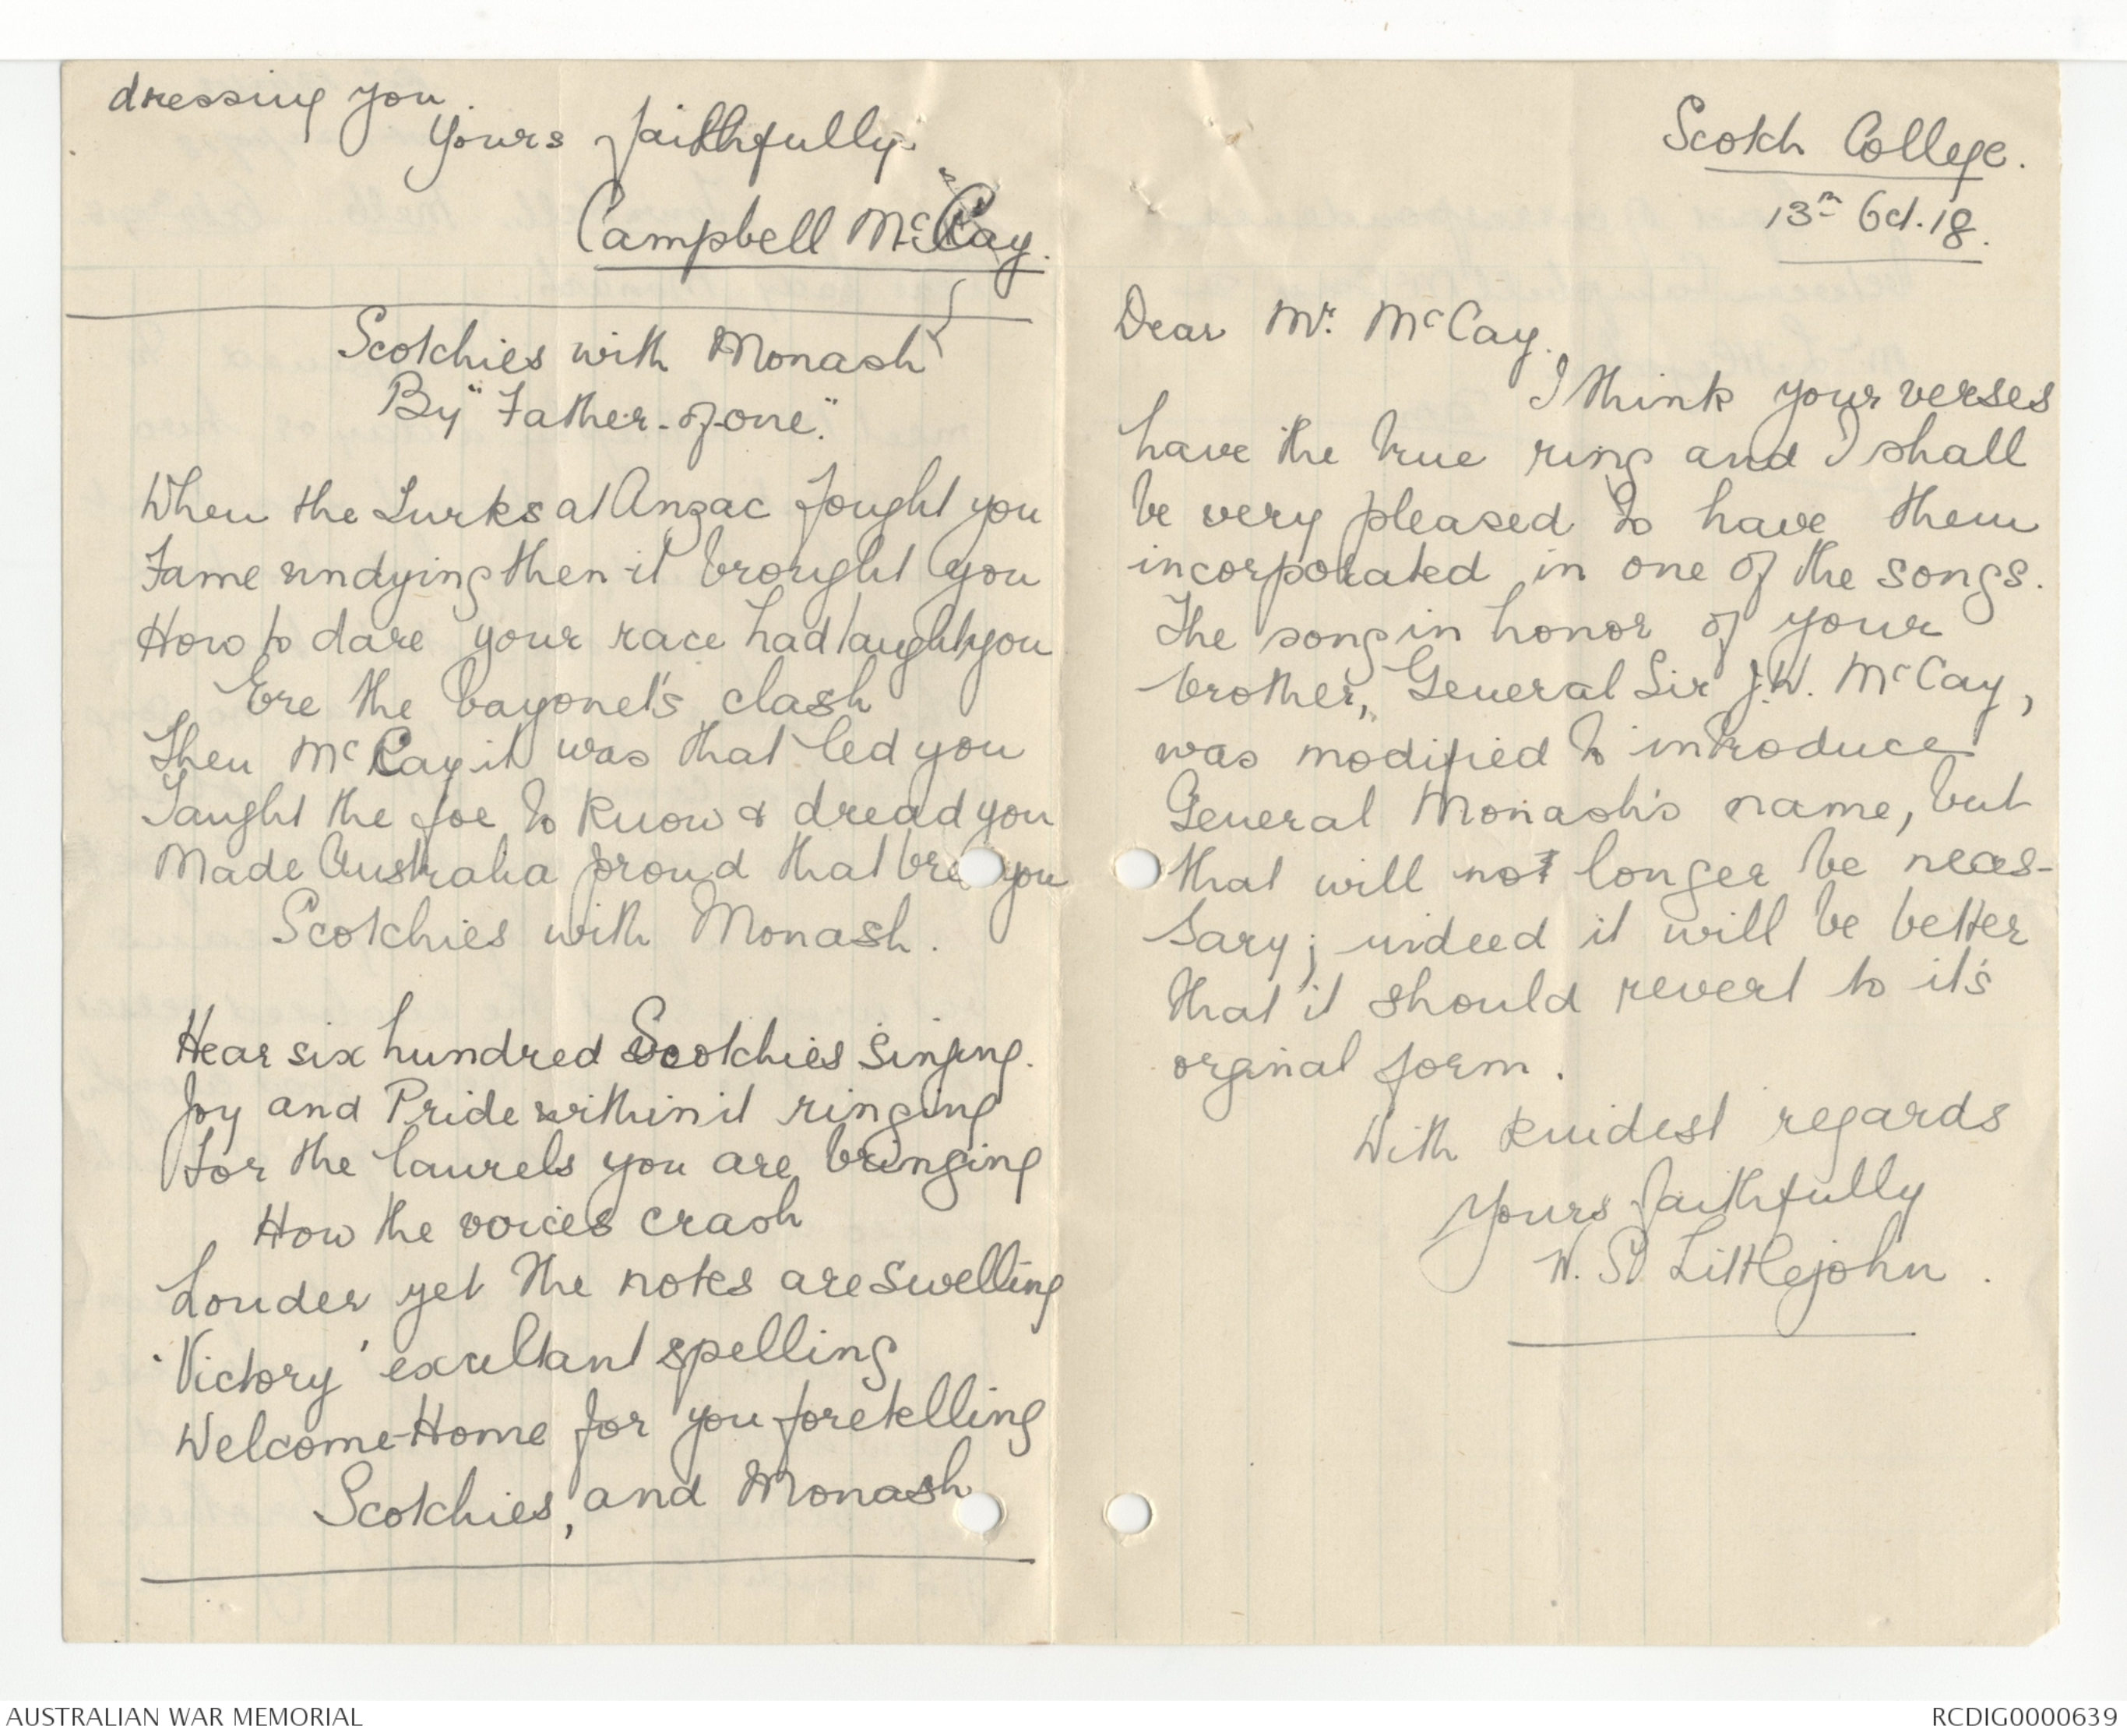 dressing you.
Yours faithfully
Campbell McCay.
Scotchies with Monash
By "Father-of-one."
When the Turks at Anzac fought you
Fame undying then it brought you
How to dare your race had taught you
Ere the bayonet's clash
Then McCay it was that led you
Taught the foe to know & dread you
Made Australia proud that bred you
Scotchies with Monash.
Hear six hundred Scotchies singing.
Joy and Pride within it ringing
For the laurels you are bringing
How the voices crash
Louder yet the notes are swelling
'Victory' exultant spelling
Welcome-Home for you foretelling
Scotchies, and Monash
Scotch College.
13th Oct. 18.
Dear Mr. McCay.
I think your verses
have the true ring and I shall
be very pleased to have them
incorporated in one of the songs.
The song in honor of your
brother, General Sir J.W. McCay,
was modified to introduce
General Monash's name, but
that will not longer be neces-
sary; indeed it will be better
that it should revert to it's
orginal form.
With kindest regards
Yours faithfully
W. S. Littlejohn.
AUSTRALIAN WAR MEMORIAL
RCDIG0000639